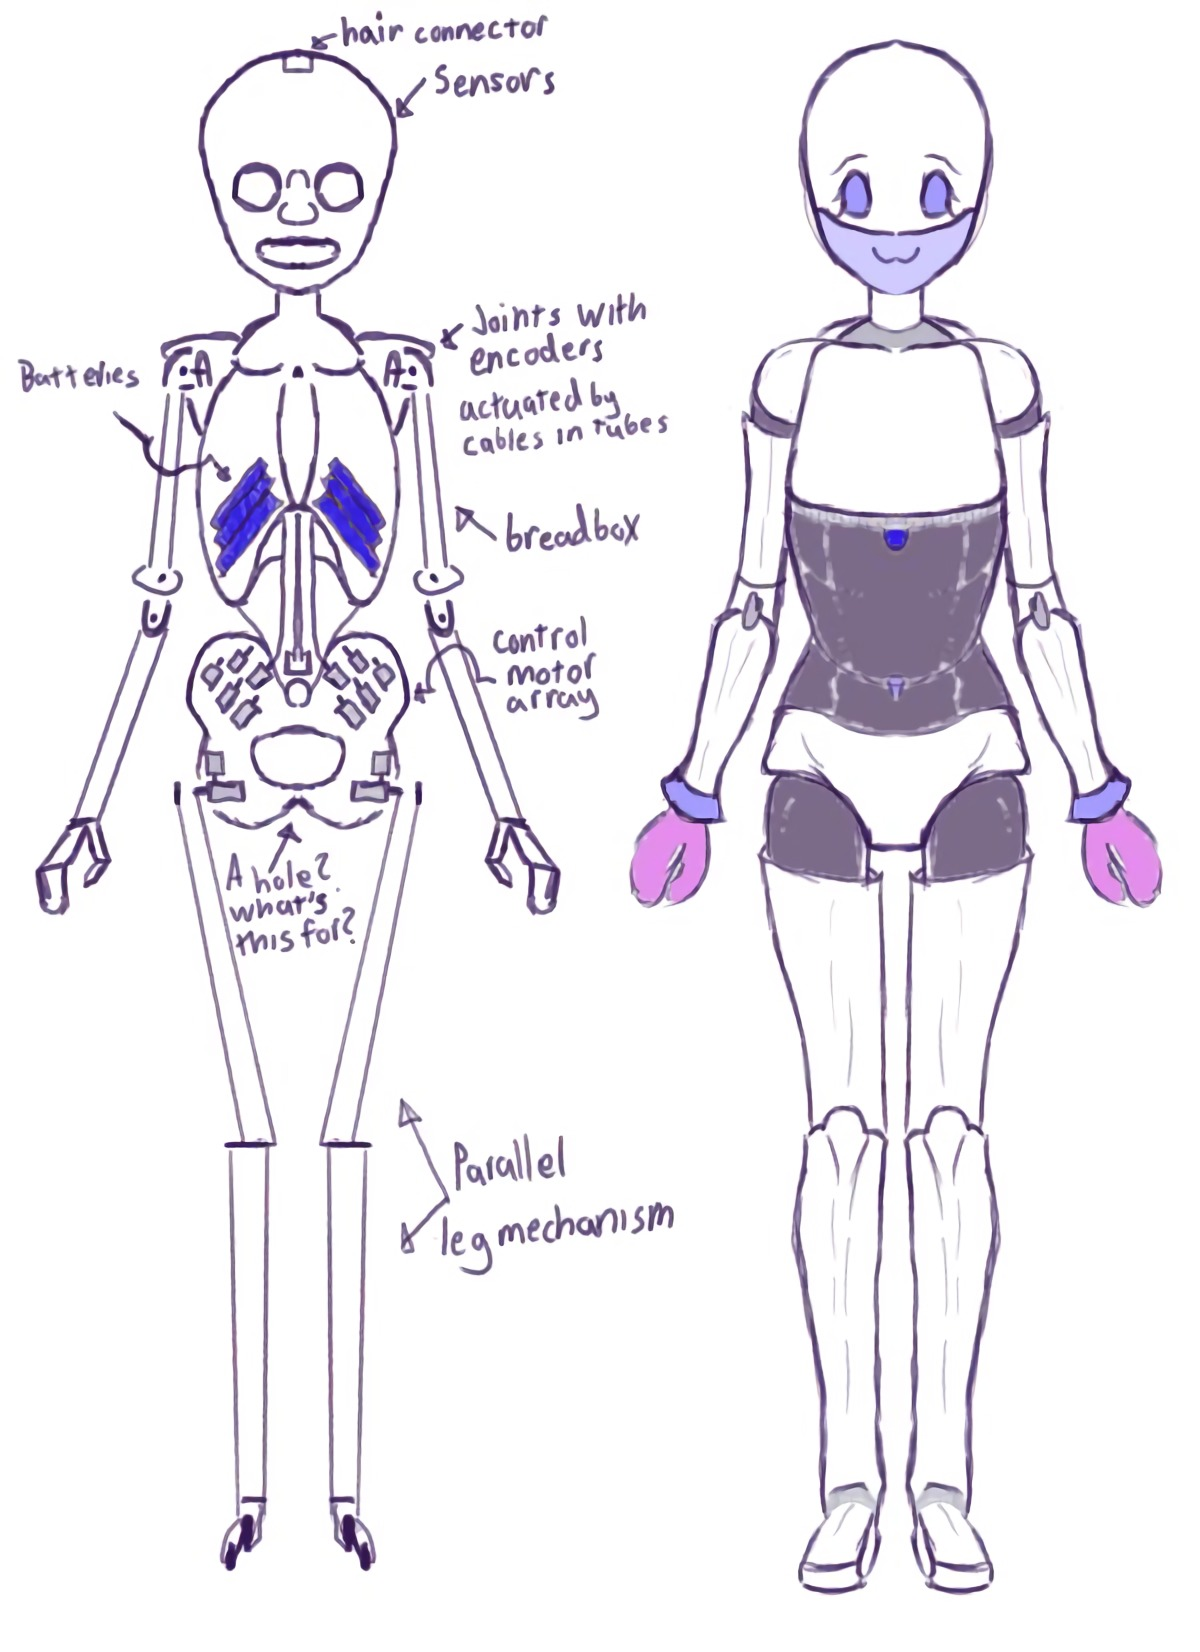 hair connector
Sensors
Joints with
encoders
actuated by
cables in tubes
Batteries
breadbox
control
motor
array
A hole?
what's
this for?
Parallel
leg mechanism